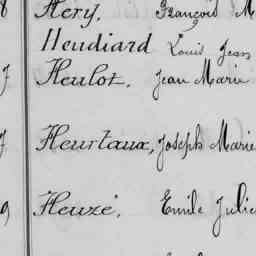 8 Hery, François M
Heudiard Louis Jean
7 Heulot, Jean Marie
7 Heurtaux, Joseph Marie
9 Heuzé, Emile Julie